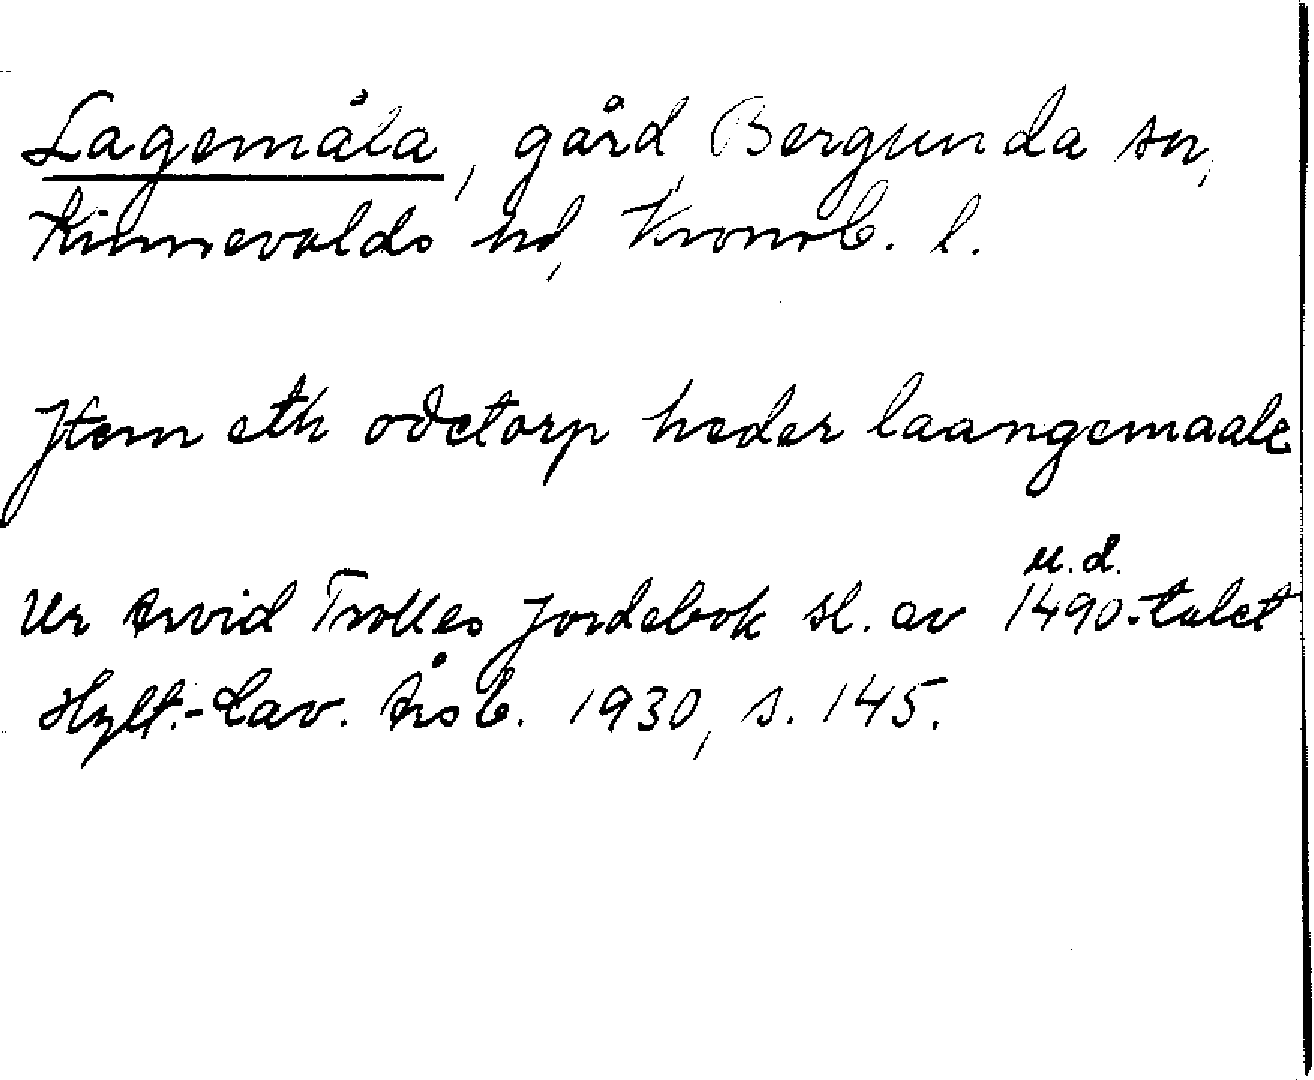 Lagemåla, gård, Bergunda sn,
Kinnevalds hd, Kronob. l.
Jtem eth ödetorp heder laangemaale
u.d.
Ur Arvid Trolles Jordebok sl. av 1490-talet
Hylt.-Cav. Årsb. 1930, s. 145.